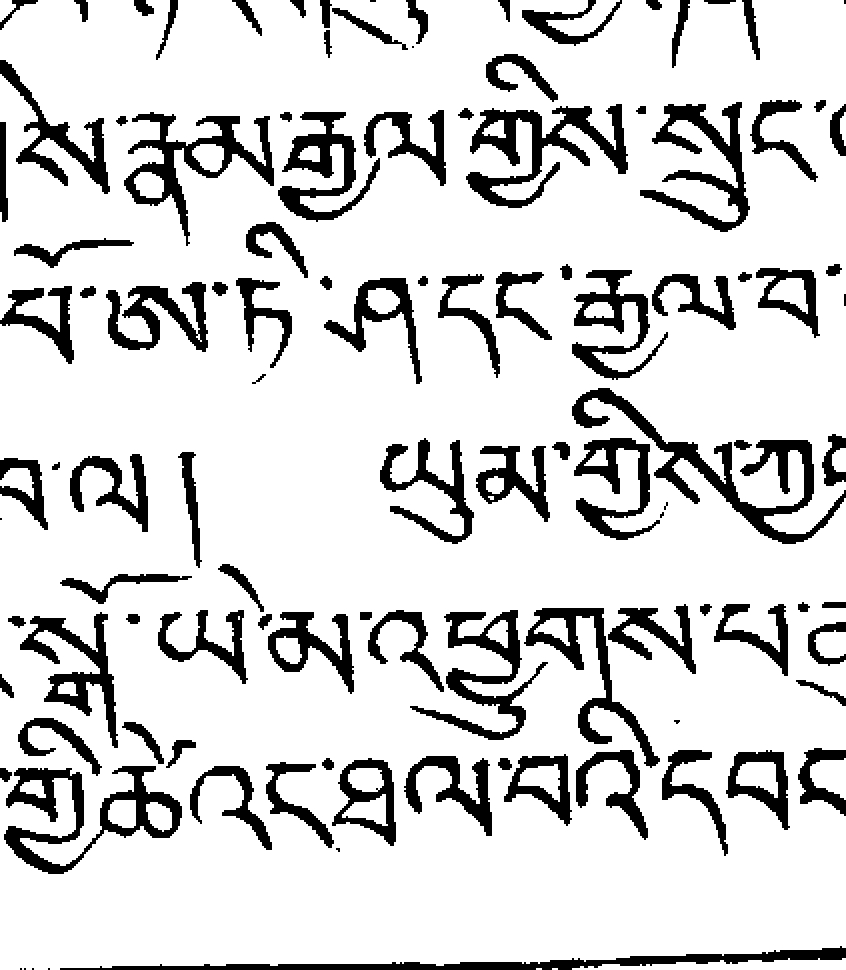 སེ་རྣམ་རྒྱལ་གྱིས་སྲུང་
པོ་ཨ་ཏི་ཤ་དང་རྒྱལ་བ་
བ་ལ། ཡུམ་གྱིས་ཀྱ
སྒོ་ཡེ་མ་འཕྱུགས་པ་
གྱི་ཚེ་འང་ཐལ་བའི་དབང